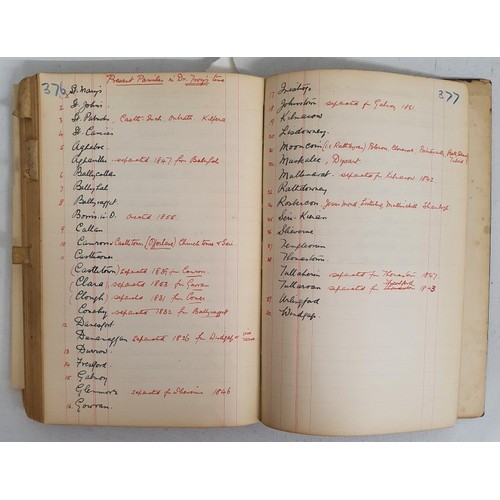 376
Present Parishes in Dr. Troy's time
1 St. Mary's
2 St. John's
3 St. Patricks Castle-Inch, Outrath, Kilferagh
4 St. Canices
5 Aghaboe
Aghavillar separated 1847 for Ballyhale
6 Ballycallan
7 Ballyhale
8 Ballyragget
Borris in O. created 1855
9 Callan
10 Camross Castletown (Offerlane)
11 Castlecomer
(Castletown) separated for Camross
(Clara) separated for Gowran
(Clough) separated 1831 for Comer
Conahy separated 1832 for Ballyragget
12 Danesfort
Danesfort separated 1836 for Windgap
13 Durrow
14 Freshford
15 Galmoy
Glenmore separated for Slieverue 1846
16 Gowran
377
17 Inistioge
18 Johnstown separated for Galmoy
19 Kilmacow
20 Lisdowney
21 Mooncoin (is Rathkieran)
22 Muckalee, Dysart
Mullinavat separated for Kilmacow 1842
23 Rathdowney
24 Rosbercon
25 Seir-Kieran
26 Slieverue
27 Templeorum
28 Thomastown
Tullaherin separated for Thomastown
Tullaroan separated for Freshford
29 Urlingford
30 Windgap